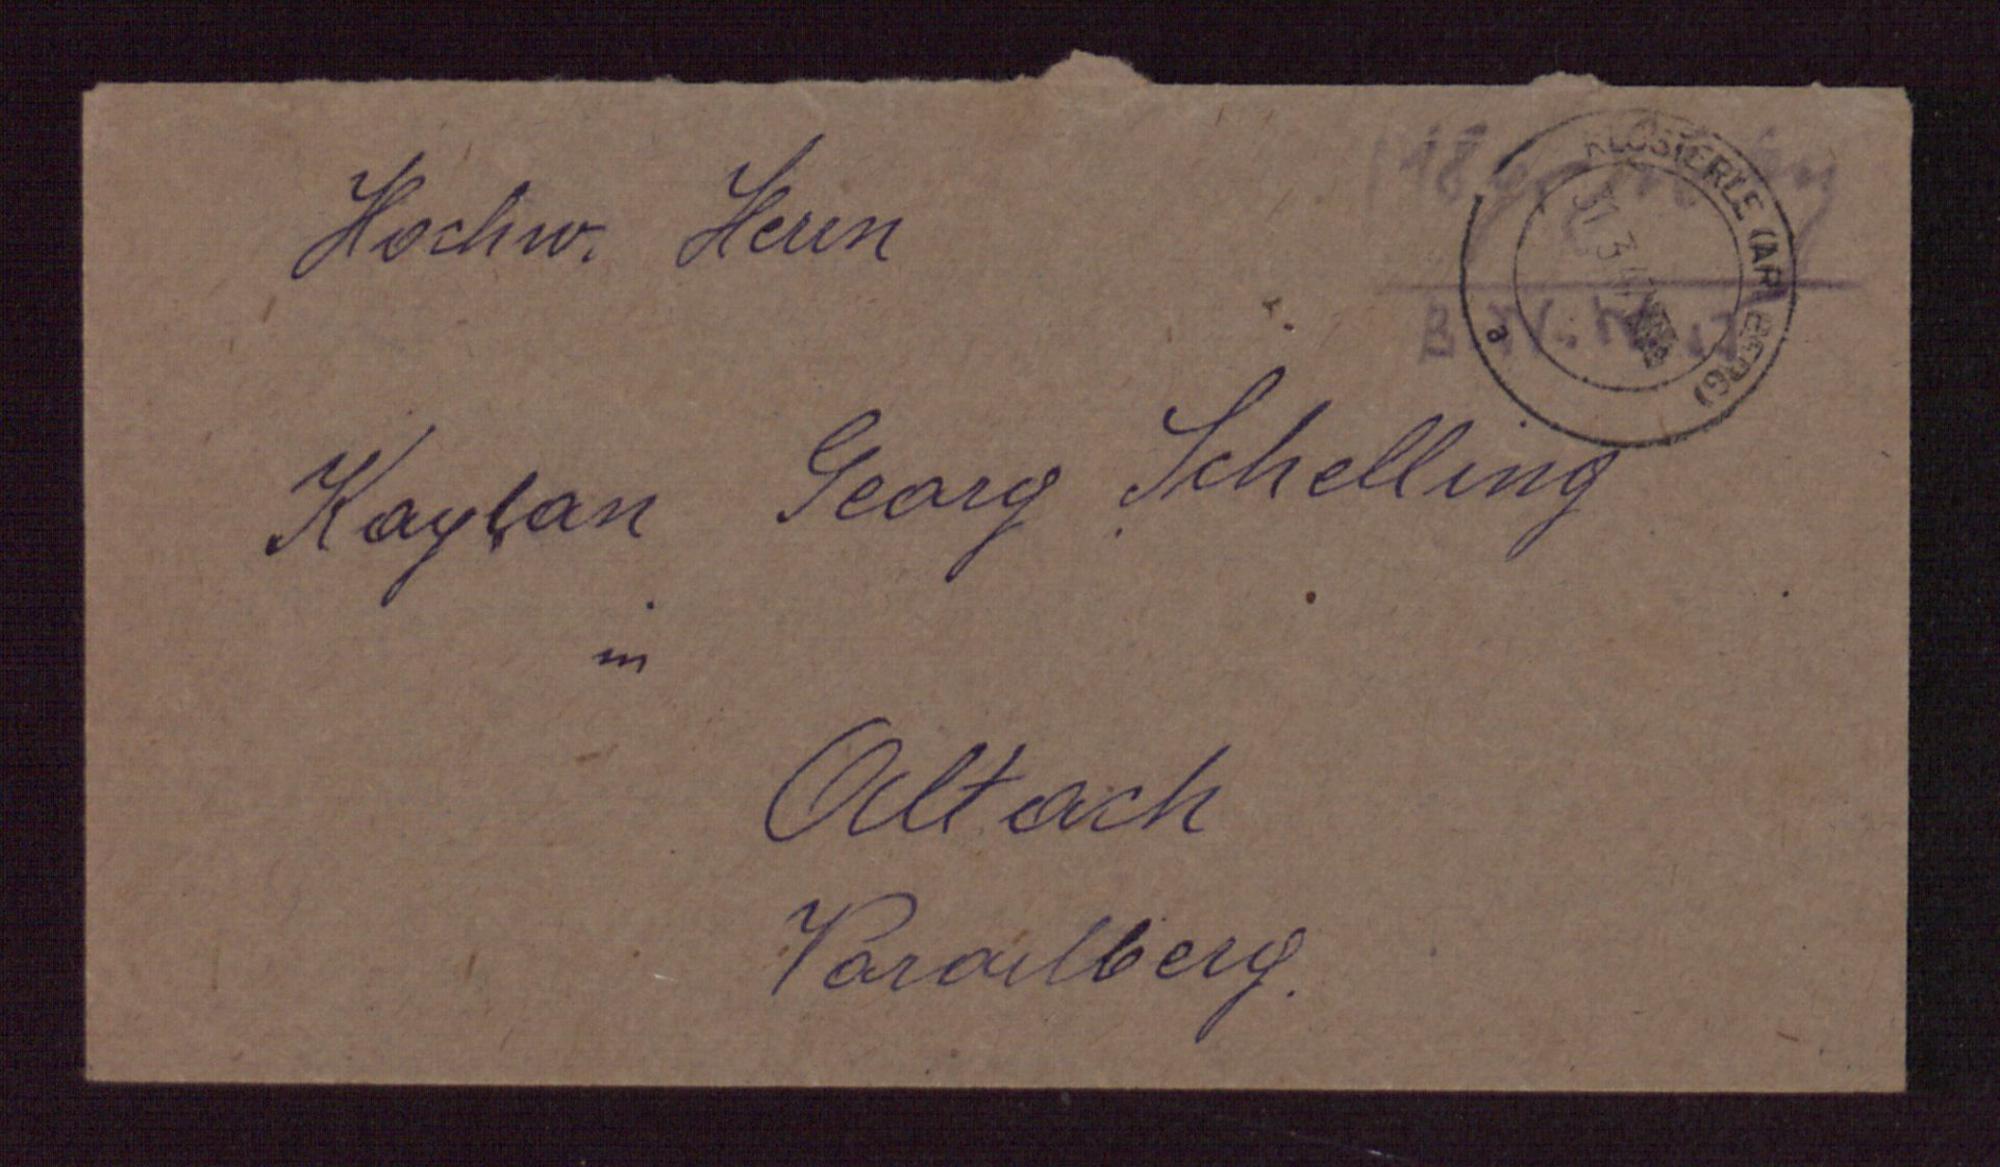 KLÖSTERLE (ARLBERG)
31.3.
a
Hochw. Herrn
Kaplan Georg Schelling
in
Altach
Vorarlberg.